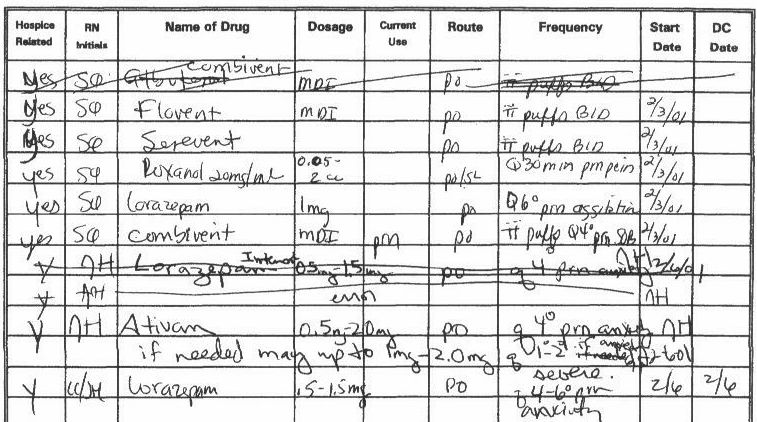 Hospice Related RN Initials Name of Drug Dosage Current Use Route Frequency Start Date DC Date
combivent
Yes SQ MDI po ii puffs BID
Yes SQ Flovent MDI po ii puffs BID 2/3/01
Yes SQ Serevent MDI po ii puffs BID 2/3/01
yes SQ Roxanol 20mg/ml 0.05-2cc po/SL Q30min prn pain 2/3/01
yes SQ Lorazepam 1mg po Q6° prn 2/3/01
yes SQ combivent MDI prn po ii puffs Q4° prn SOB 2/3/01
Y AH Lorazepam Intensol 0.5mg-1.5mg po q 4° prn anxiety AH 2/6/01
Y AH error AH
Y AH Ativan 0.5mg-2.0mg po q 4° prn anxiety AH
if needed may up to 1mg-2.0mg q 1-2° if 2-6-01
severe.
Y Lorazepam .5-1.5mg PO q 4-6° prn anxiety 2/6 2/6